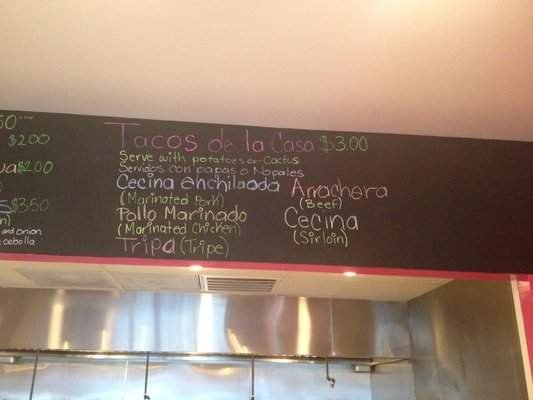 50
$2.00
$2.00
$3.50
and onion
cebolla
Tacos de la Casa $3.00
Serve with potatoes or Cactus
Servidos con papas o Nopales
Cecina enchilaada
(Marinated Pork)
Pollo Marinado
(Marinated Chicken)
Tripa (Tripe)
Arrachera
(Beef)
Cecina
(Sirloin)